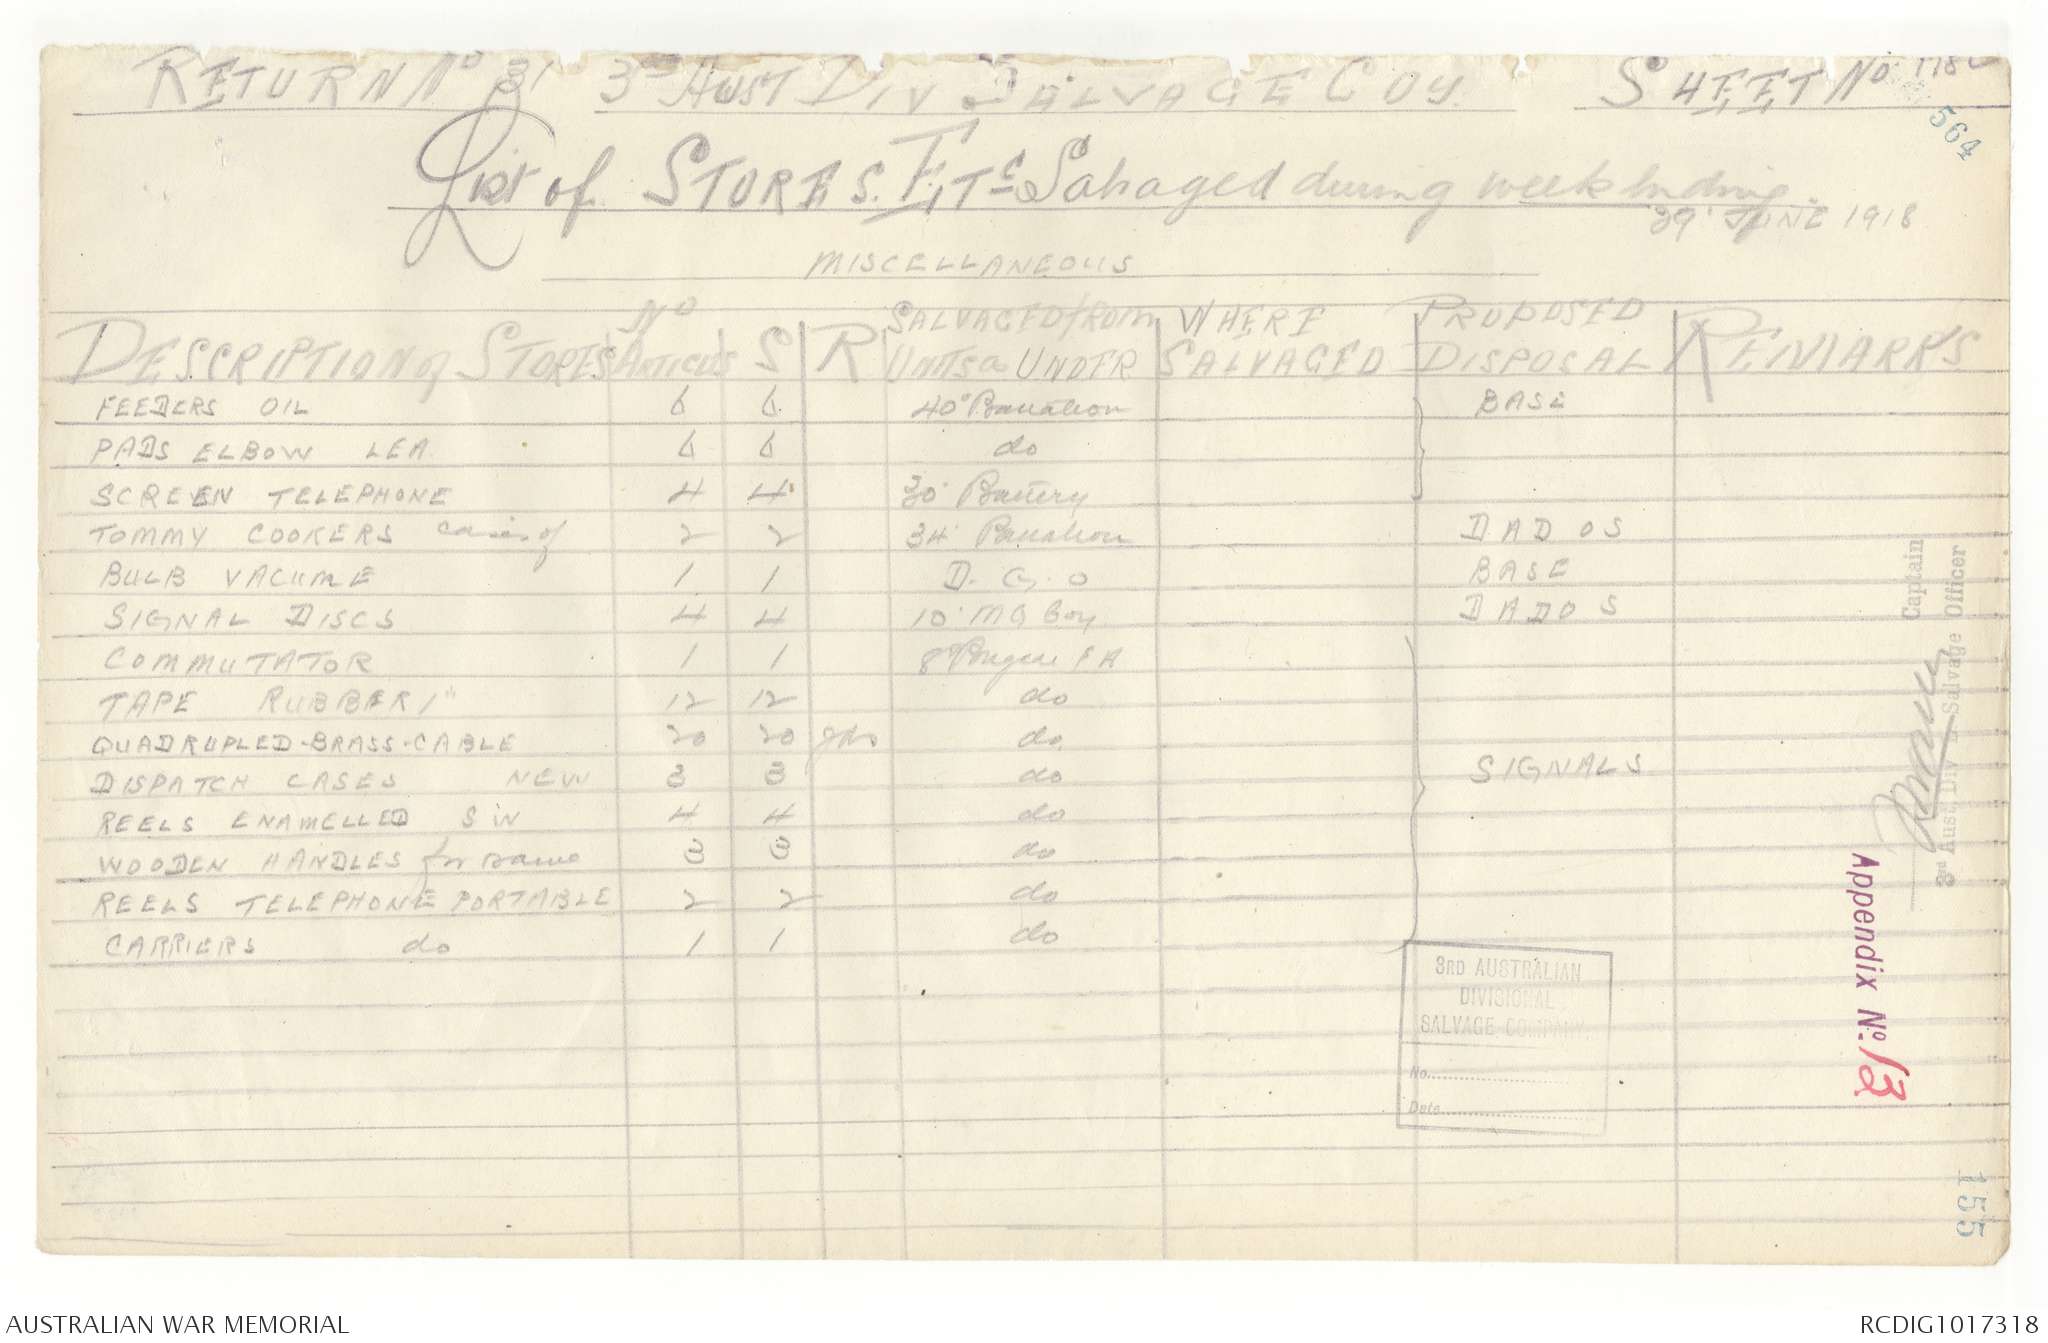 RETURN No 31 3rd AUST DIV SALVAGE COY. SHEET No 118
564
List of STORES. ETc Salvaged during week Ending
29' JUNE 1918
MISCELLANEOUS
DESCRIPTION of STORES No ARTICLES S R SALVAGED from UNITS or UNDER WHERE SALVAGED PROPOSED DISPOSAL REMARKS
FEEDERS OIL 6 6 40' Battalion BASE
PADS ELBOW LEA. 6 6 do
SCREEN TELEPHONE 4 4 30' Battery
TOMMY COOKERS cases of 2 2 34' Battalion DADOS
BULB VACUME 1 1 D. G. O BASE
SIGNAL DISCS 4 4 10' MG Coy DADOS
COMMUTATOR 1 1 8' FA
TAPE RUBBER 1" 12 12 do
QUADRUPLED-BRASS-CABLE 20 20 yds do
DISPATCH CASES NEW 3 3 do SIGNALS
REELS ENAMELLED S IN 4 4 do
WOODEN HANDLES for same 3 3 do
REELS TELEPHONE PORTABLE 2 2 do
CARRIERS do 1 1 do
3RD AUSTRALIAN
DIVISIONAL
SALVAGE COMPANY.
No.
Date
Captain
3rd Aust. Div Salvage Officer
Appendix No. 13
155
AUSTRALIAN WAR MEMORIAL RCDIG1017318